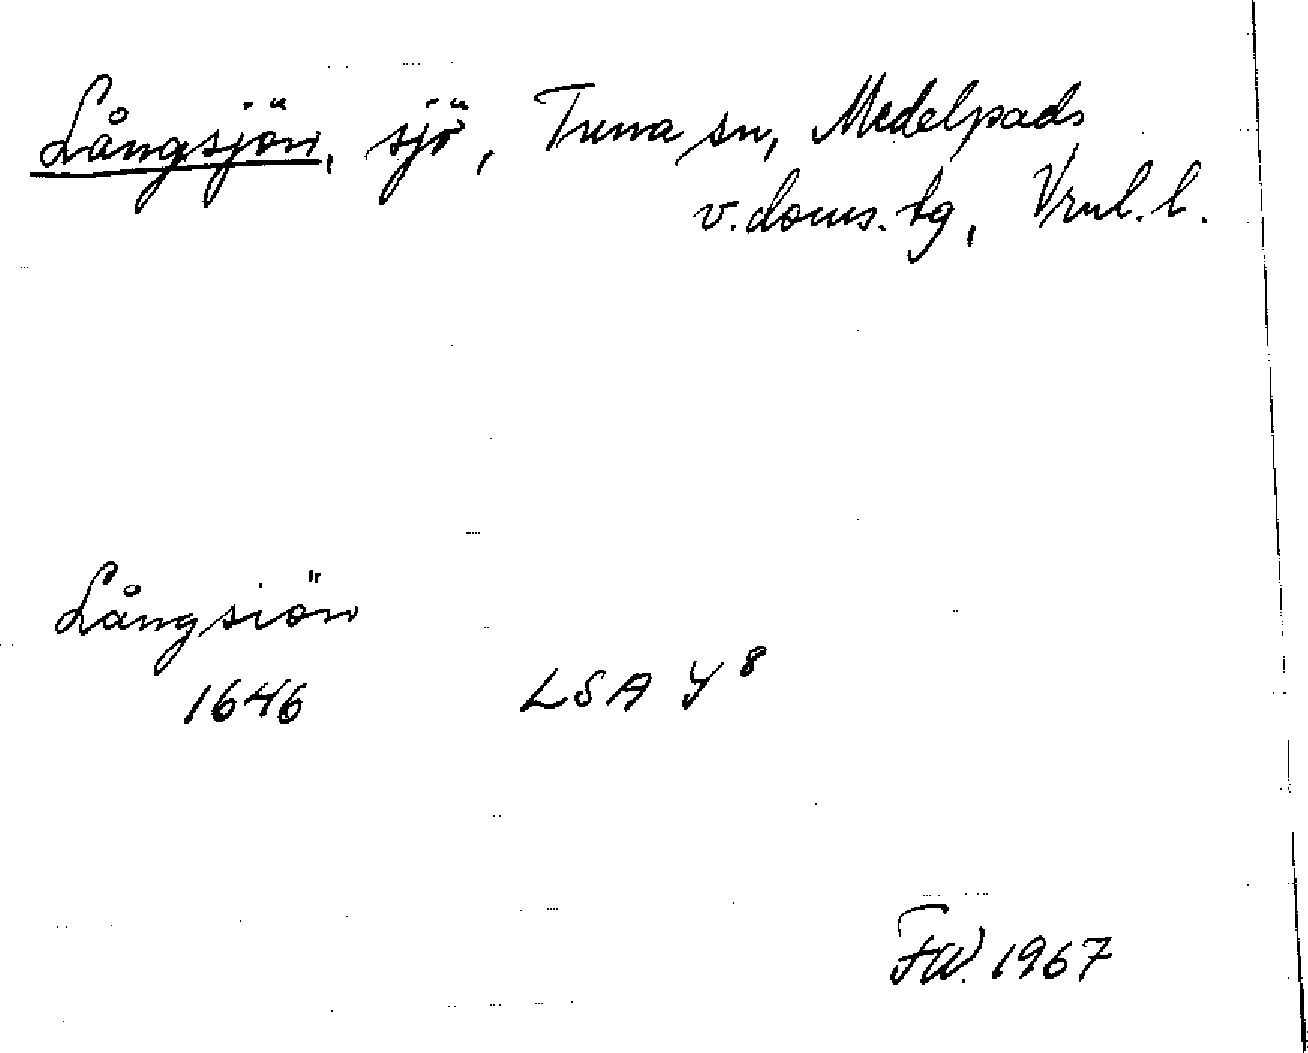 Långsjön, sjö, Tuna sn, Medelpads
v. doms. tg, Vrnl. l.
Långsiön
1646 LSA Y 8
FW. 1967